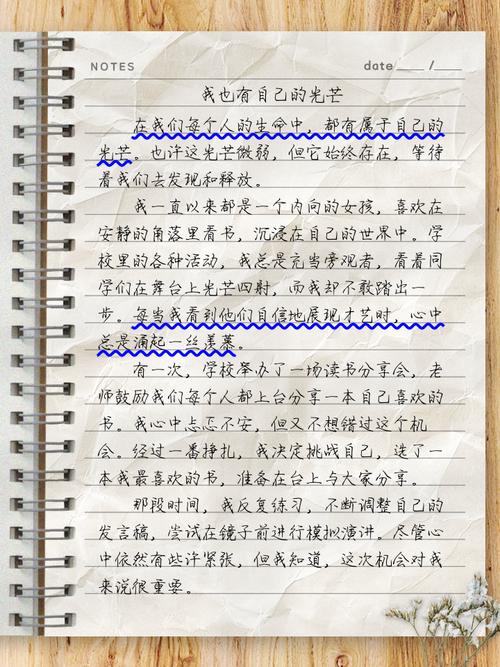 NOTES
date ____ / ___
我也有自己的光芒
在我们每个人的生命中，都有属于自己的
光芒。也许这光芒微弱，但它始终存在，等待
着我们去发现和释放。
我一直以来都是一个内向的女孩，喜欢在
安静的角落里看书，沉浸在自己的世界中。学
校里的各种活动，我总是充当旁观者，看着同
学们在舞台上光芒四射，而我却不敢踏出一
步。每当我看到他们自信地展现才艺时，心中
总是涌起一丝羡慕。
有一次，学校举办了一场读书分享会，老
师鼓励我们每个人都上台分享一本自己喜欢的
书。我心中忐忑不安，但又不想错过这个机
会。经过一番挣扎，我决定挑战自己，选了一
本我最喜欢的书，准备在台上与大家分享。
那段时间，我反复练习，不断调整自己的
发言稿，尝试在镜子前进行模拟演讲。尽管心
中依然有些许紧张，但我知道，这次机会对我
来说很重要。